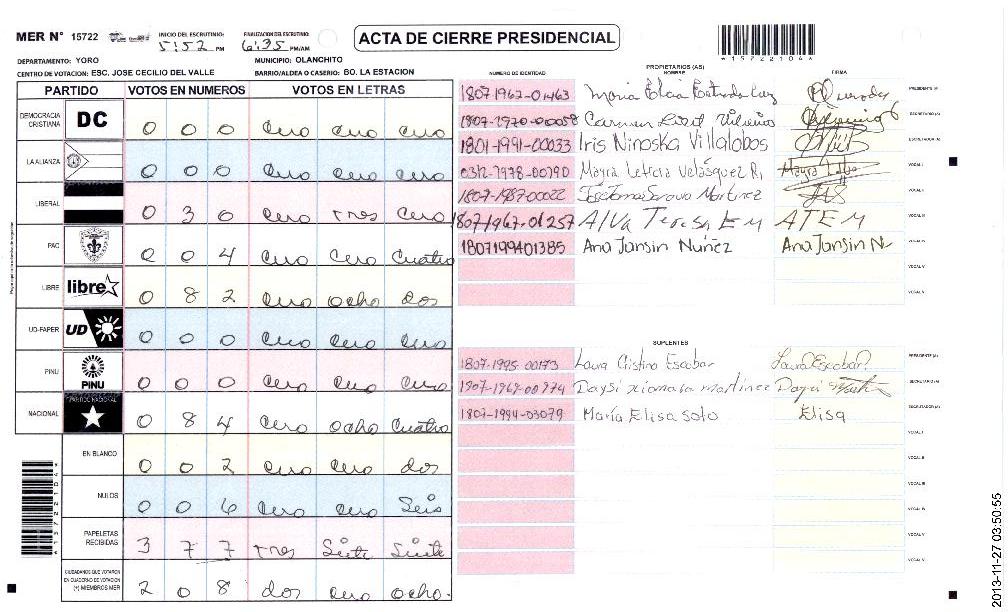 MER N° 15722
INICIO DEL ESCRUTINIO: 5:52 PM
FINALIZACION DEL ESCRUTINIO: 6:35 PM/AM
ACTA DE CIERRE PRESIDENCIAL
*157221046*
DEPARTAMENTO: YORO
MUNICIPIO: OLANCHITO
CENTRO DE VOTACION: ESC. JOSE CECILIO DEL VALLE
BARRIO/ALDEA O CASERIO: BO. LA ESTACION
PARTIDO VOTOS EN NUMEROS VOTOS EN LETRAS
DEMOCRACIA CRISTIANA DC 0 0 0 cero cero cero
LA ALIANZA 0 0 0 cero cero cero
LIBERAL 0 3 0 cero tres cero
PAC 0 0 4 cero cero cuatro
LIBRE libre 0 8 2 cero ocho dos
UD-FAPER UD 0 0 0 cero cero cero
PINU PINU 0 0 0 cero cero cero
NACIONAL PARTIDO NACIONAL 0 8 4 cero ocho cuatro
EN BLANCO 0 0 2 cero cero dos
NULOS 0 0 6 cero cero Seis
PAPELETAS RECIBIDAS 3 7 7 tres Siete Siete
CIUDADANOS QUE VOTARON EN CUADERNO DE VOTACION (+) MIEMBROS MER 2 0 8 dos cero ocho.
PROPIETARIOS (AS)
NUMERO DE IDENTIDAD NOMBRE FIRMA
1807 1967-01463 Maria Elsa PRESIDENTE (A)
1807-1970-00058 Carmen SECRETARIO (A)
1801-1991-00033 Iris Ninoska Villalobos ESCRUTADOR (A)
0312-1978-00790 Mayra Leticia Velásquez R. Mayra VOCAL I
1807-1987-00022 José Tomas Martinez VOCAL II
1807-1967-01257 Alva Teresa E M A T E M VOCAL III
1807199401385 Ana Jansin Nuñez Ana Jansin N VOCAL IV
VOCAL V
VOCAL V
SUPLENTES
1807-1995-00173 Laura Cristina Escobar Laura Escobar PRESIDENTE (A)
1807-1969-00774 Daysi Xiomara Martinez Daysi SECRETARIO (A)
1807-1994-03079 María Elisa Soto Elisa ESCRUTADOR (A)
VOCAL I
VOCAL II
VOCAL III
VOCAL IV
VOCAL V
VOCAL V
2013-11-27 03:50:55